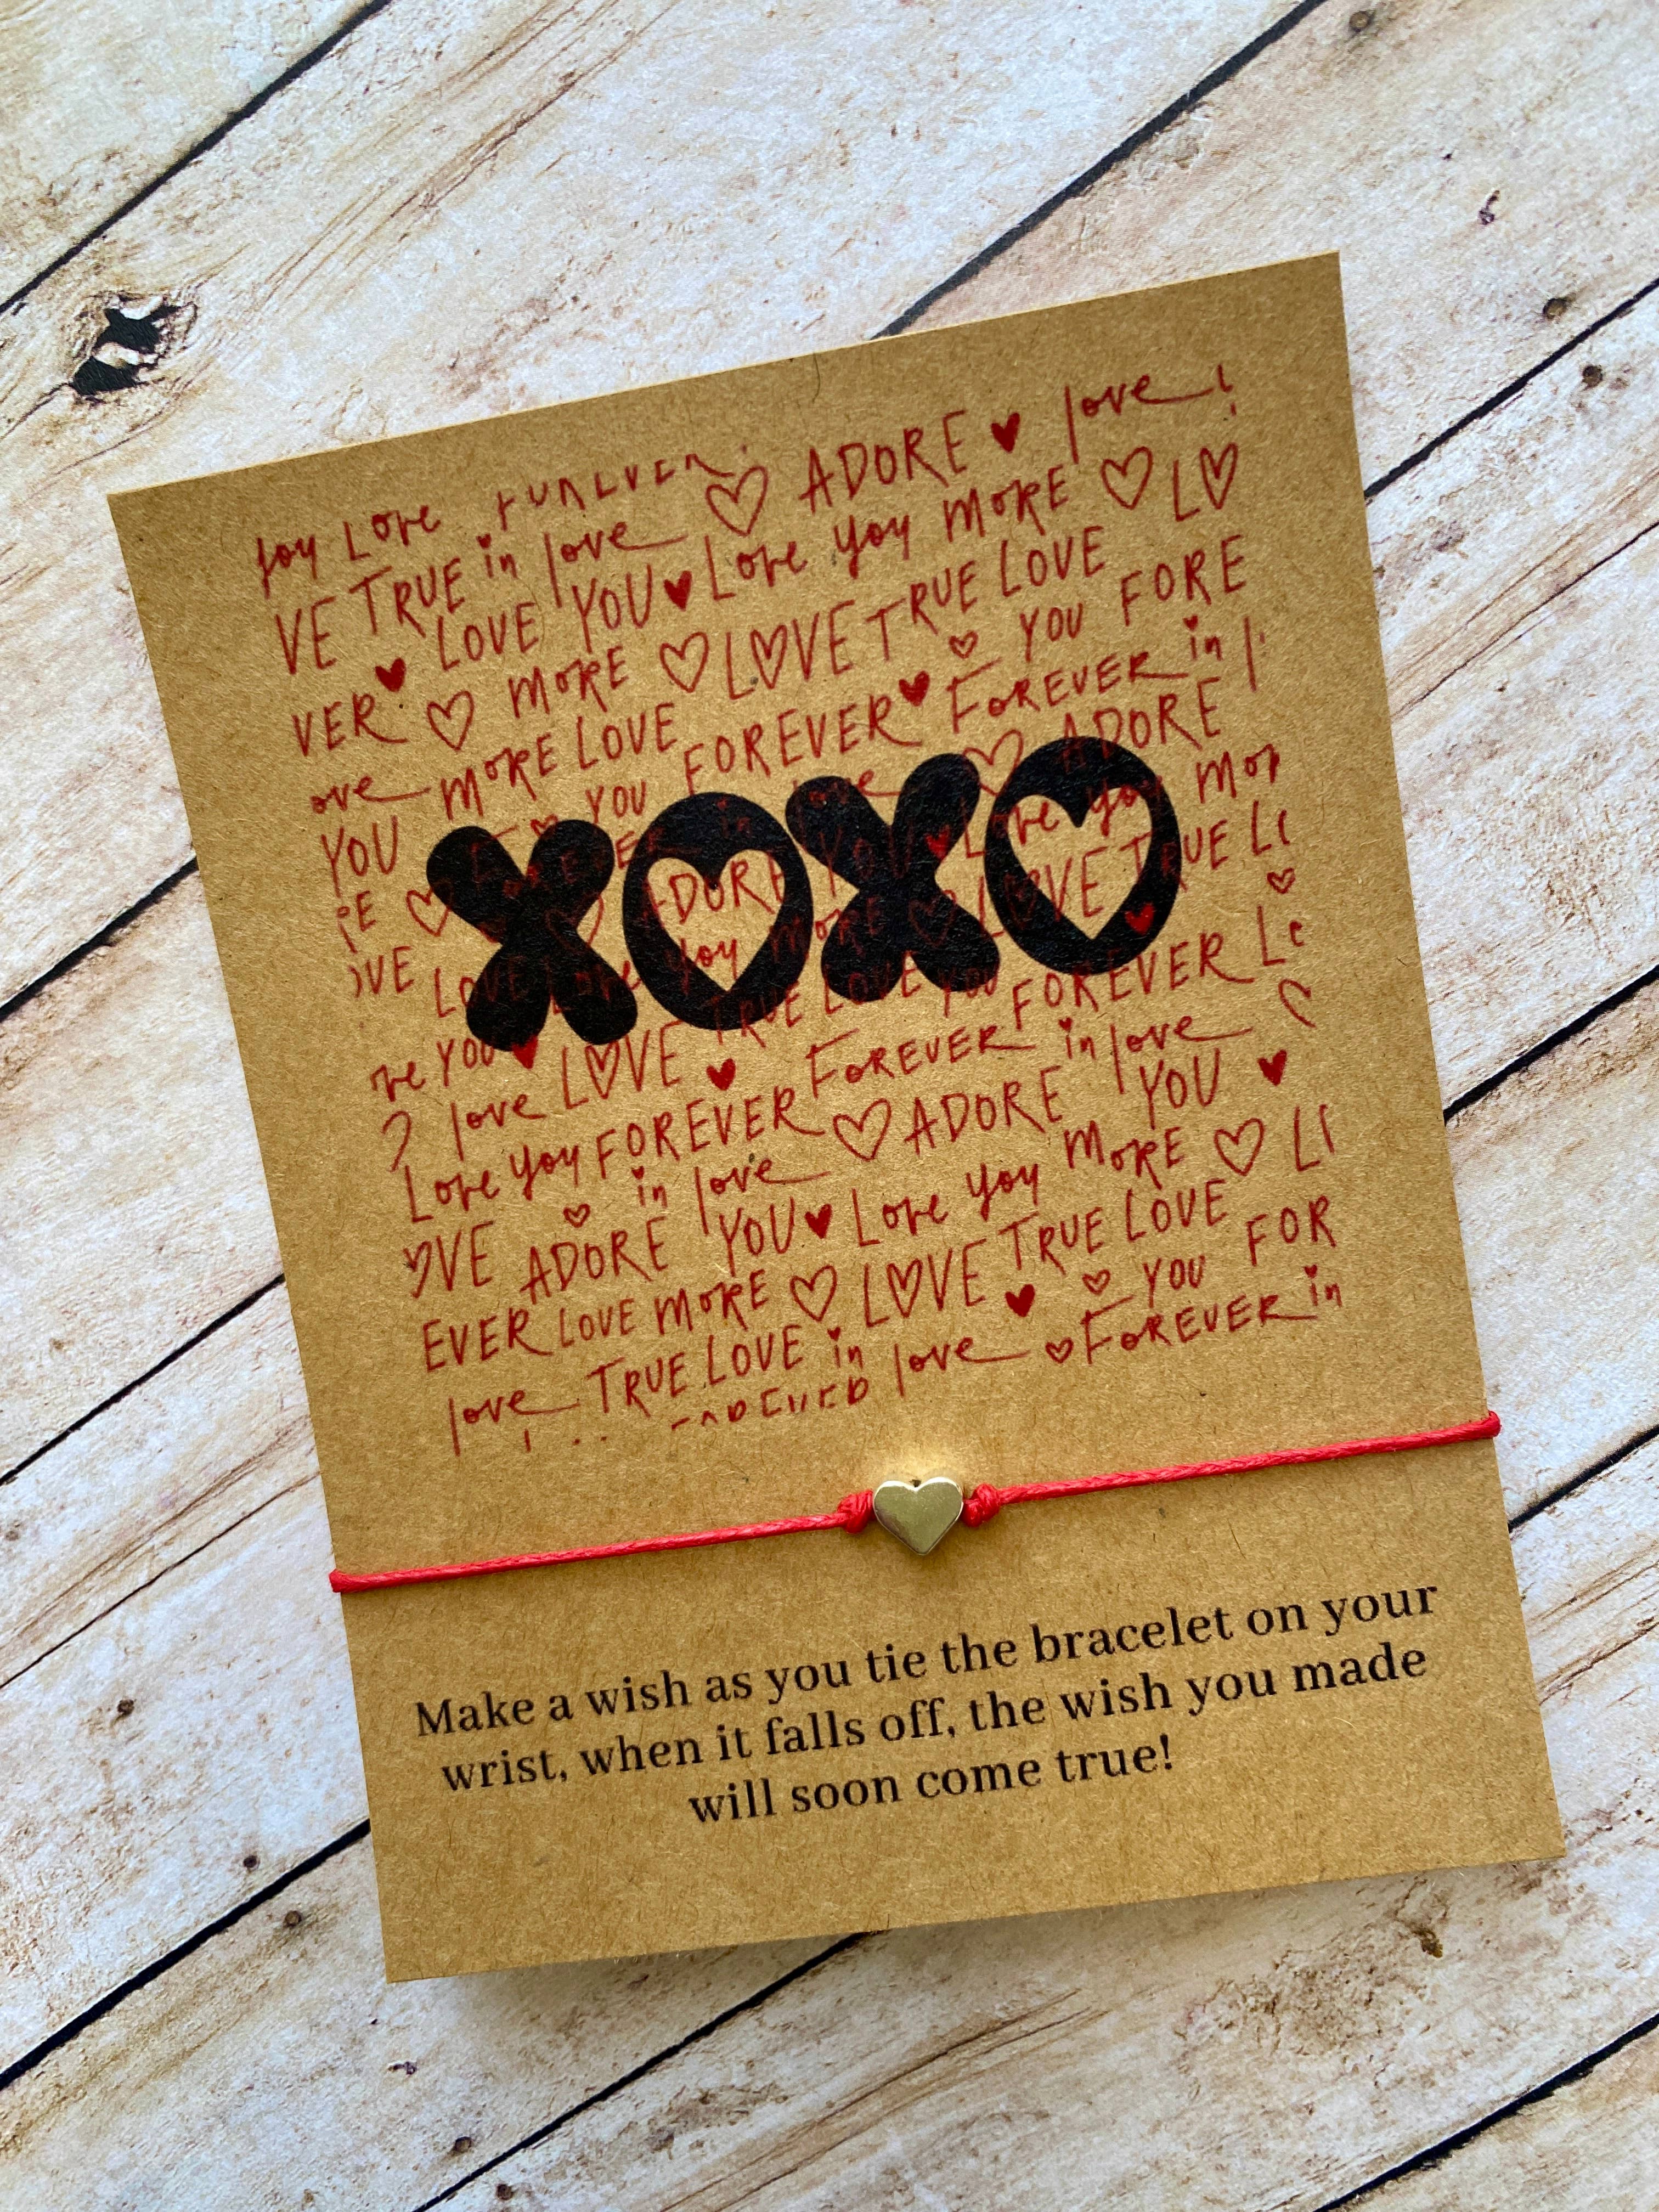 you Love
VE TRUE in love ADORE love
LOVE YOU Love you MORE LO
VER MORE LOVE TRUE LOVE
ove MORE LOVE YOU FORE
YOU YOU FOREVER FOREVER in
XOXO
ADORE
ADORE YOU Love you
OVE LOVE Love you MORE LOVE TRUE
YOU TRUE LOVE YOU FOREVER
love LOVE FOREVER in love
Love you FOREVER ADORE YOU
OVE in love Love you MORE
ADORE YOU TRUE LOVE
EVER LOVE MORE LOVE YOU FOR
love TRUE LOVE in love FOREVER in
Make a wish as you tie the bracelet on your
wrist, when it falls off, the wish you made
will soon come true!